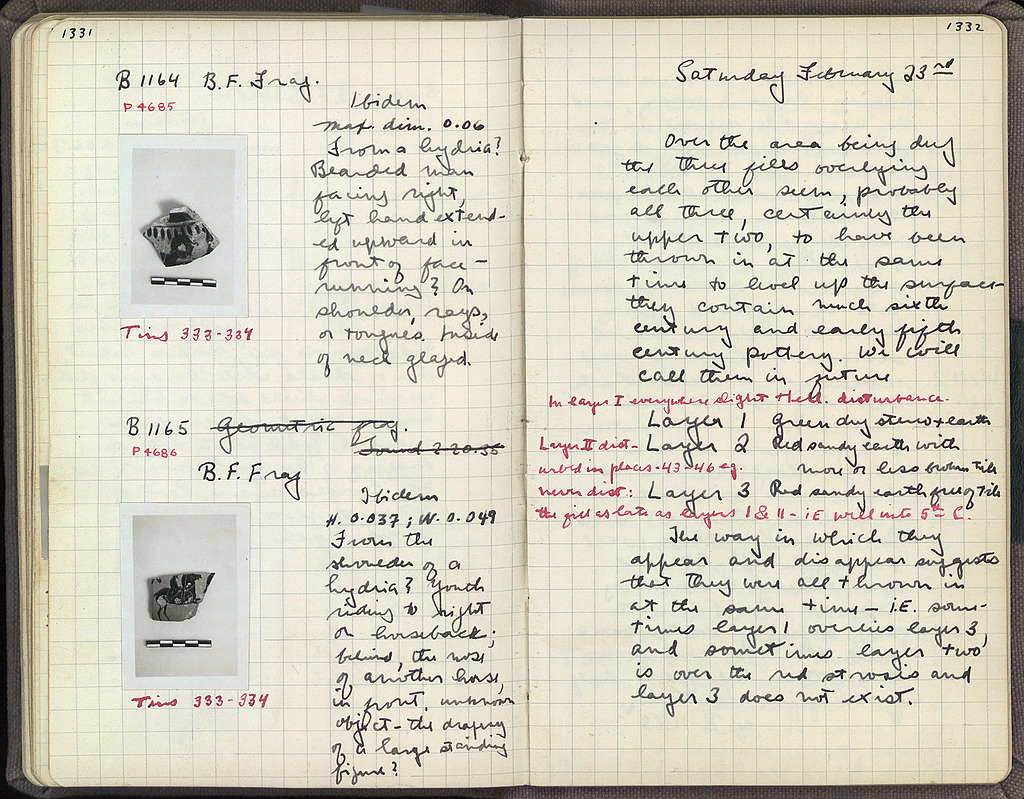 1331
B 1164 B.F. Frag.
P 4685
Ibidem
max. dim. 0.06
From a hydria?
Bearded man
facing right,
left hand extend-
ed upward in
front of face –
running? On
shoulder, rays,
or tongues. Inside
of neck glazed.
Tins 333-334
B 1165 Geometric frag.
P 4686
Found 2-20-35
B.F. Frag
Ibidem
H. 0.037; W. 0.049
From the
shoulder of a
hydria? Youth
riding to right
on horseback;
behind, the nose
of another horse,
in front, unknown
object – the drapery
of a large standing
figure?
Tins 333-334
1332
Saturday February 23rd
Over the area being dug
the three fills overlying
each other seem, probably
all three, certainly the
upper two, to have been
thrown in at the same
time to level up the surface
they contain much sixth
century and early fifth
century pottery. We will
call them in future
In layer I everywhere slight Hell. disturbance.
Layer 1 Green dry stereo & earth
Layer II dist-
Layer 2 Red sandy earth with
urbed in places - 43-46 eg.
more or less broken tile
never dist:
Layer 3 Red sandy earth free of tile
the fill as late as layers I & II - i.E. well into 5th C.
The way in which they
appear and disappear suggests
that they were all thrown in
at the same time – i.E. some-
times layer 1 overlies layer 3,
and sometimes layer two
is over the red strosis and
layer 3 does not exist.